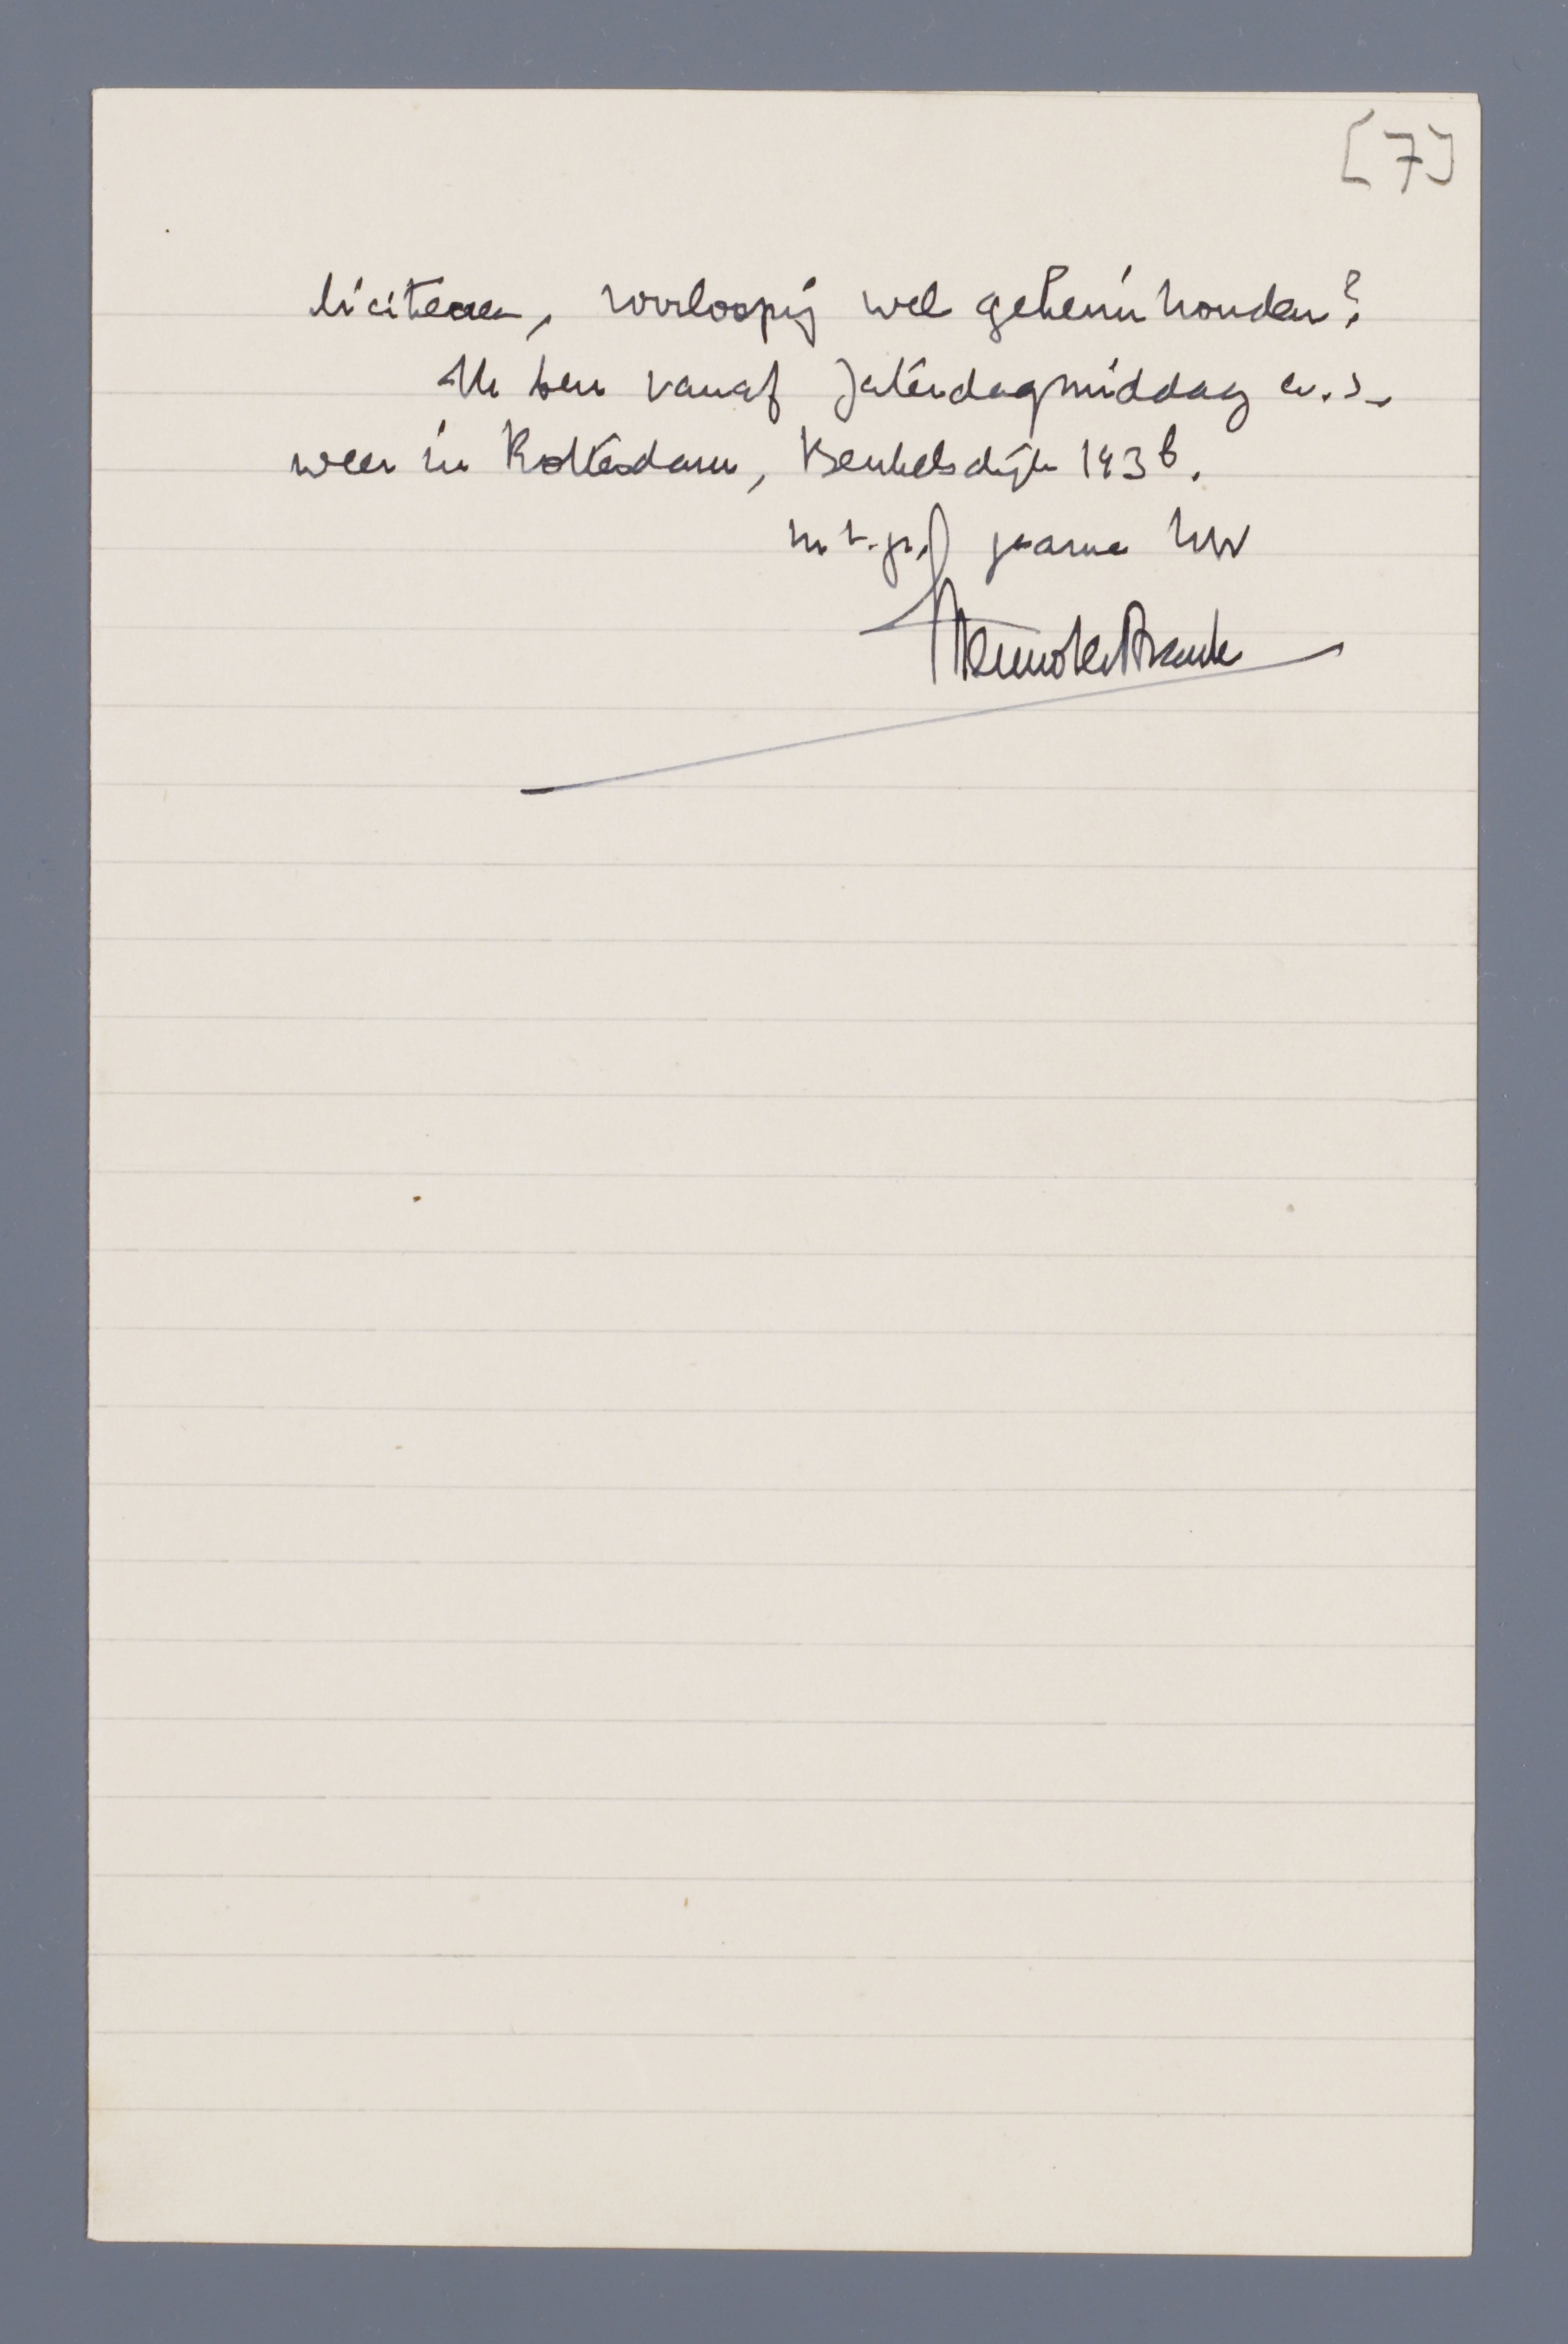 [7]
liciteeren, voorloopig wel geheim houden?
Ik ben vanaf Zaterdagmiddag a.s.
weer in Rotterdam, Beukelsdijk 143b.
m.v.gr. gaarne Uw
Menno ter Braak